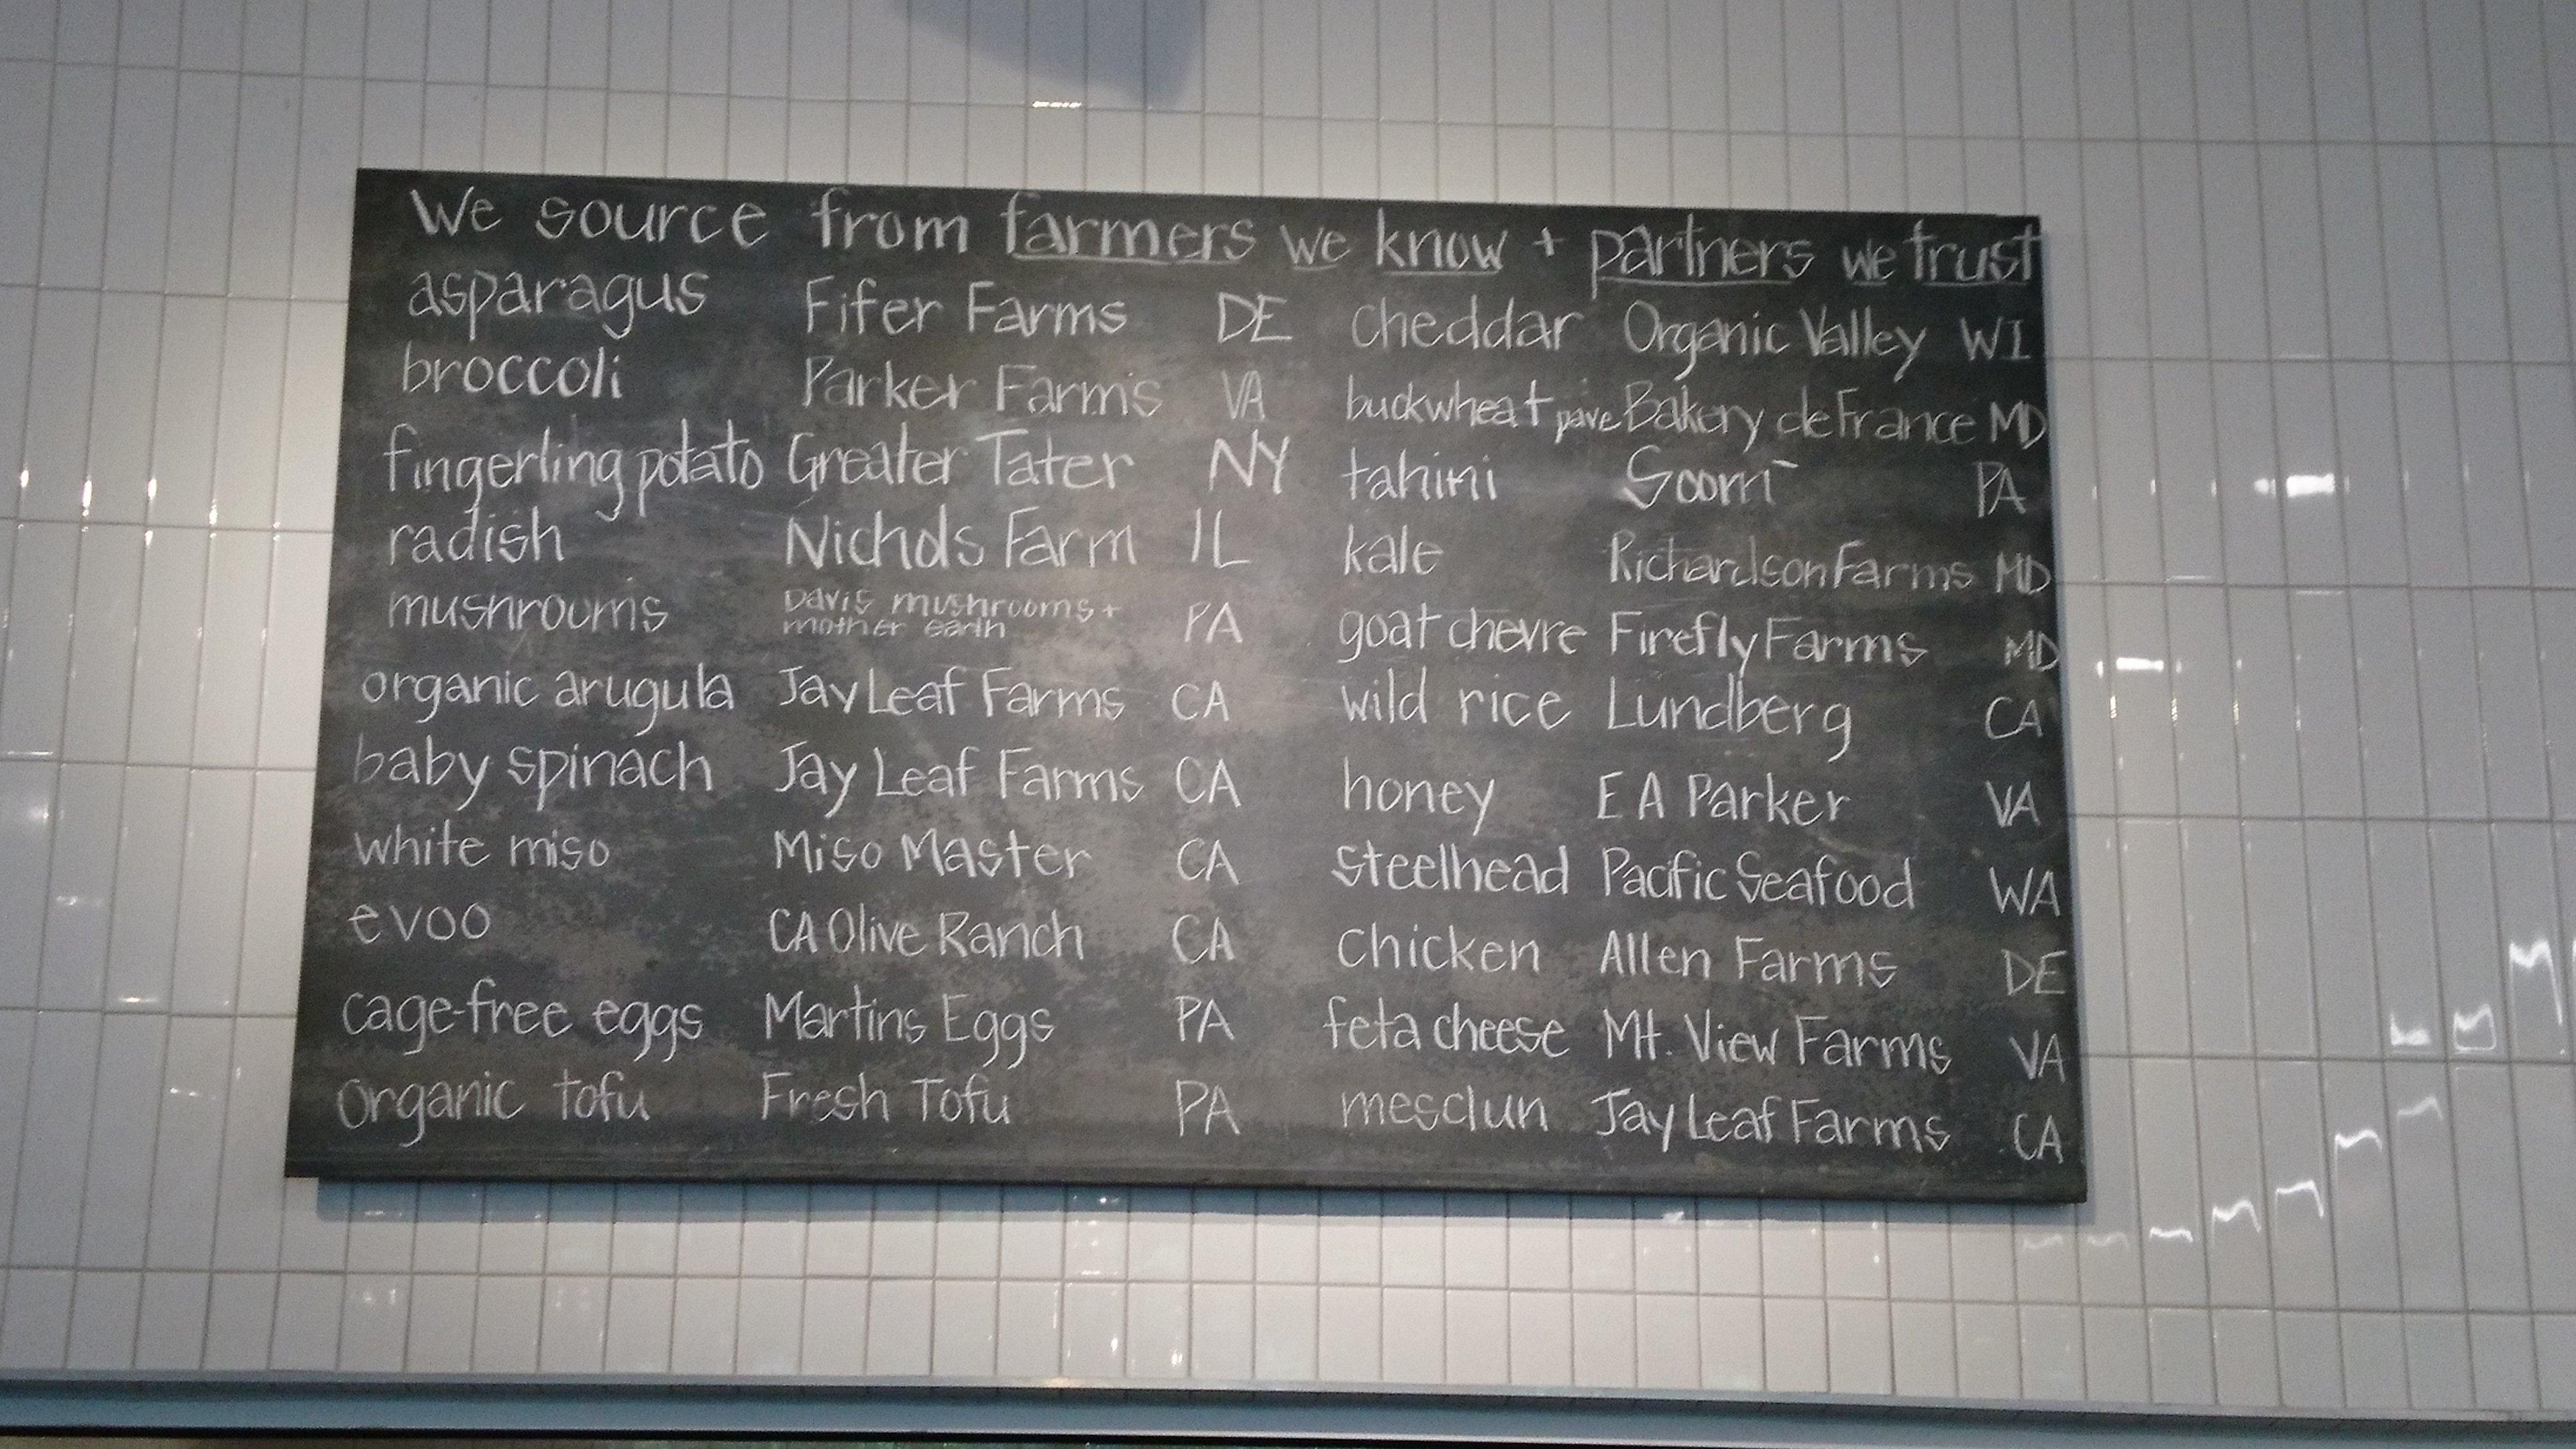 We source from farmers we know + partners we trust
asparagus Fifer Farms DE
broccoli Parker Farms VA
fingerling potato Greater Tater NY
radish Nichols Farm IL
mushrooms Davis mushrooms +
mother earth PA
organic arugula Jay Leaf Farms CA
baby spinach Jay Leaf Farms CA
white miso Miso Master CA
evoo CA Olive Ranch CA
cage-free eggs Martins Eggs PA
organic tofu Fresh Tofu PA
cheddar Organic Valley WI
buckwheat pave Bakery de France MD
tahini Soom PA
kale Richardson Farms MD
goat chevre Firefly Farms MD
wild rice Lundberg CA
honey E A Parker VA
steelhead Pacific Seafood WA
chicken Allen Farms DE
feta cheese Mt. View Farms VA
mesclun Jay Leaf Farms CA